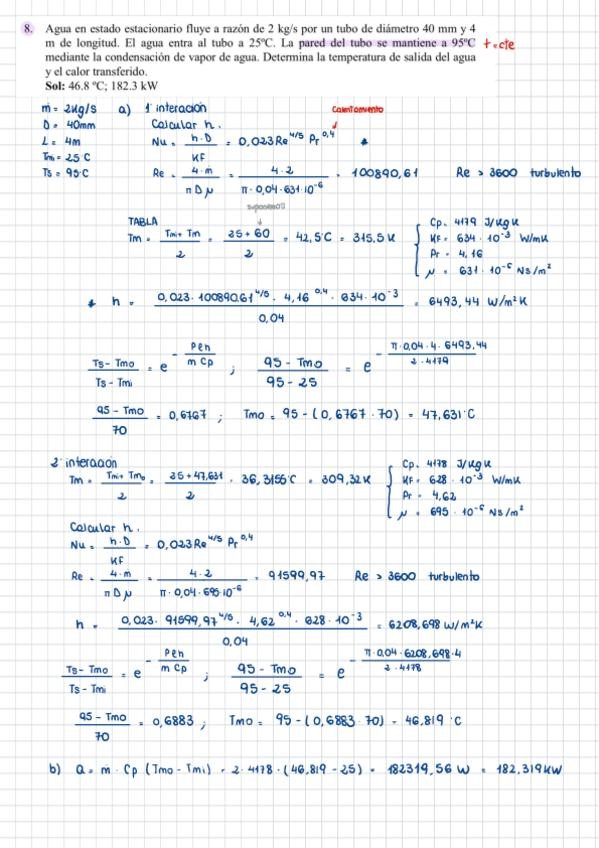 8. Agua en estado estacionario fluye a razón de 2 kg/s por un tubo de diámetro 40 mm y 4
m de longitud. El agua entra al tubo a 25ºC. La pared del tubo se mantiene a 95ºC T=cte
mediante la condensación de vapor de agua. Determina la temperatura de salida del agua
y el calor transferido.
Sol: 46.8 ºC; 182.3 kW
ṁ = 2Kg/s a) 1ª interación Calentamiento
D = 40mm Calcular h.
L = 4m Nu = h·D / KF = 0,023 Re^4/5 Pr^0,4 *
Tmi = 25ºC
Ts = 95ºC Re = 4·ṁ / π D μ = 4·2 / π·0,04·631·10^-6 = 100890,61 Re > 3600 turbulento
suponemos
TABLA
Tm = Tmi + Tm / 2 = 25 + 60 / 2 = 42,5ºC = 315,5 K
Cp = 4179 J/Kg K
KF = 634·10^-3 W/mK
Pr = 4,16
μ = 631·10^-6 Ns/m²
* h = 0,023·100890,61^4/5 · 4,16^0,4 · 634·10^-3 / 0,04 = 6493,44 W/m²K
Ts - Tmo / Ts - Tmi = e^- PLh / ṁ Cp ; 95 - Tmo / 95 - 25 = e^- π·0,04·4·6493,44 / 2·4179
95 - Tmo / 70 = 0,6767 ; Tmo = 95 - (0,6767·70) = 47,631ºC
2ª interación
Tm = Tmi + Tmo / 2 = 25 + 47,631 / 2 = 36,3155ºC = 309,32 K
Cp = 4178 J/Kg K
KF = 628·10^-3 W/mK
Pr = 4,62
μ = 695·10^-6 Ns/m²
Calcular h.
Nu = h·D / KF = 0,023 Re^4/5 Pr^0,4
Re = 4·ṁ / π D μ = 4·2 / π·0,04·695·10^-6 = 91599,97 Re > 3600 turbulento
h = 0,023·91599,97^4/5 · 4,62^0,4 · 628·10^-3 / 0,04 = 6208,698 W/m²K
Ts - Tmo / Ts - Tmi = e^- PLh / ṁ Cp ; 95 - Tmo / 95 - 25 = e^- π·0,04·6208,698·4 / 2·4178
95 - Tmo / 70 = 0,6883 ; Tmo = 95 - (0,6883·70) = 46,819 ºC
b) Q = ṁ · Cp (Tmo - Tmi) = 2·4178·(46,819 - 25) = 182319,56 W = 182,319 KW